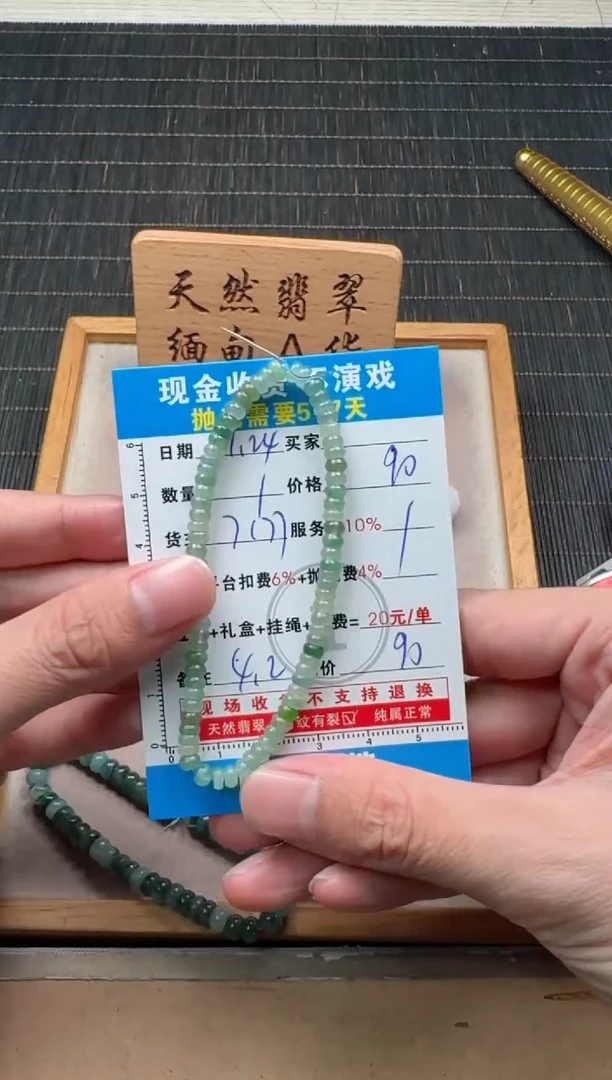 天然翡翠
缅甸A货
现金收货 演戏
抛 需要5 7天
日期 1.24 买家
数量 1 价格 90
货主 服务 10% /
台扣费6%+抛 费4%
+礼盒+挂绳+ 费= 20元/单
4.2 价 90
现场收 不支持退换
天然翡翠 纹有裂☑ 纯属正常